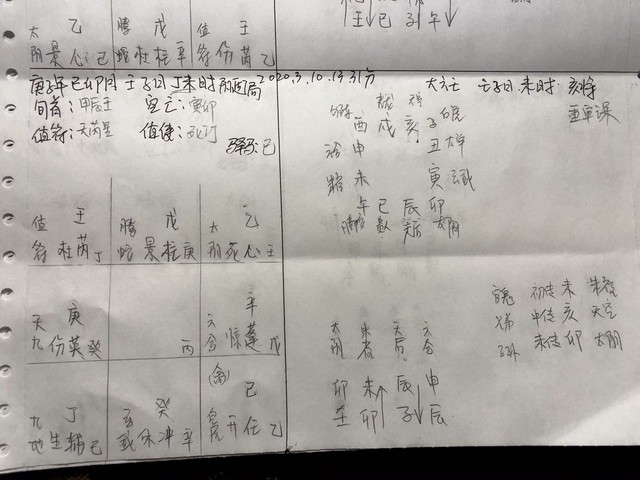 太 乙 腾 戊 值 壬
阴 景 心 己 蛇 杜 柱 辛 符 伤 芮 乙
壬↓ 巳 子 午↓
庚子年 己卯月 壬子日 丁未时 2020.3.10.13.31分
旬首:甲辰壬 空亡:寅卯
值符:天芮星 值使:死门
驿马:巳
值 壬 腾 戊 太 乙
符 杜 芮 丁 蛇 景 柱 庚 阴 死 心 壬
天 庚 辛
九 伤 英 癸 丙 六合 惊 蓬 戊
(禽)
九 丁 玄 癸 己
地 生 辅 己 武 休 冲 辛 白虎 开 任 乙
大六壬 壬子日 未时 亥将
重审课
酉 戌 亥 子 白虎
申 丑 太常
未 寅 玄武
午 巳 辰 卯
腾蛇 天后 太阴
初传 未 朱雀
兄弟 中传 亥 天空
子孙 末传 卯 太阴
太阴 朱雀 天后 六合
卯 未↑ 辰 申
壬 卯 子↓ 辰